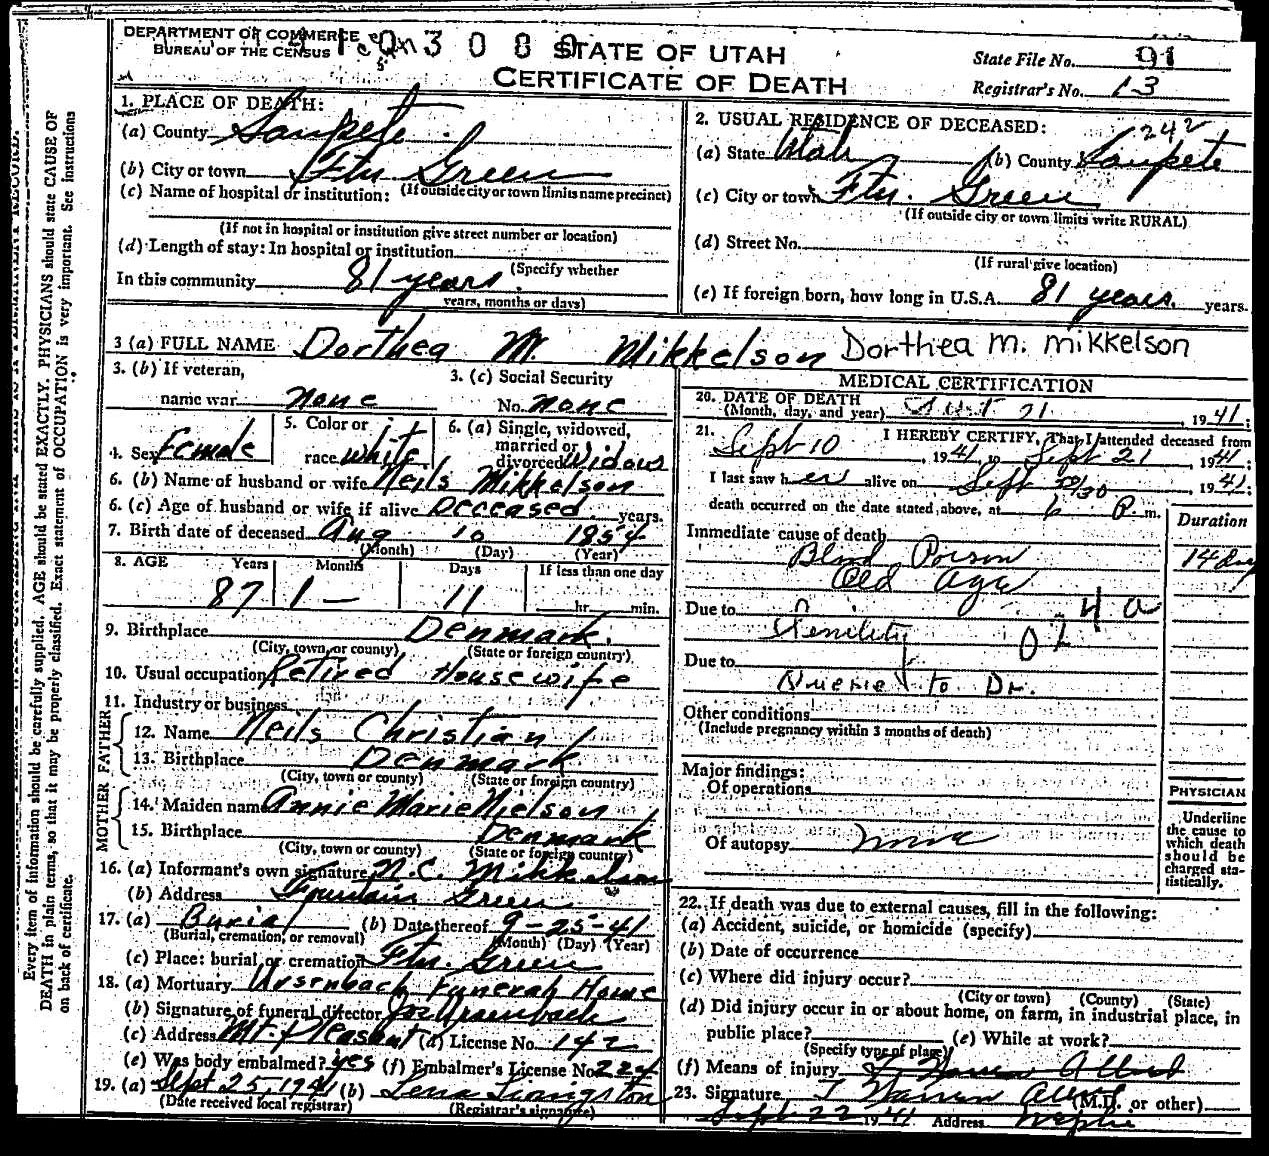 DEPARTMENT OF COMMERCE
BUREAU OF THE CENSUS
STATE OF UTAH
CERTIFICATE OF DEATH
State File No. 91
Registrar's No. 13
1. PLACE OF DEATH:
(a) County Sanpete
(b) City or town Ftn. Green
(If outside city or town limits name precinct)
(c) Name of hospital or institution:
(If not in hospital or institution give street number or location)
(d) Length of stay: In hospital or institution
(Specify whether
In this community 81 years
years, months or days)
2. USUAL RESIDENCE OF DECEASED: 242
(a) State Utah (b) County Sanpete
(c) City or town Ftn. Green
(If outside city or town limits write RURAL)
(d) Street No.
(If rural give location)
(e) If foreign born, how long in U.S.A. 81 years. years.
3 (a) FULL NAME Dorthea M. Mikkelson Dorthea M. Mikkelson
3. (b) If veteran,
name war none
3. (c) Social Security
No. none
4. Sex Female
5. Color or
race white
6. (a) Single, widowed,
married or
divorced Widow
6. (b) Name of husband or wife Neils Mikkelson
6. (c) Age of husband or wife if alive Deceased years.
7. Birth date of deceased Aug 10 1854
(Month) (Day) (Year)
8. AGE Years Months Days If less than one day
87 1 – 11 hr. min.
9. Birthplace Denmark.
(City, town or county) (State or foreign country)
10. Usual occupation Retired Housewife
11. Industry or business
FATHER
12. Name Neils Christian
13. Birthplace Denmark
(City, town or county) (State or foreign country)
MOTHER
14. Maiden name Annie Marie Nielson
15. Birthplace Denmark
(City, town or county) (State or foreign country)
16. (a) Informant's own signature N.C. Mikkelson
(b) Address Fountain Green
17. (a) Burial (b) Date thereof 9-25-41
(Burial, cremation, or removal) (Month) (Day) (Year)
(c) Place: burial or cremation Ftn. Green
18. (a) Mortuary Ursenbach Funeral Home
(b) Signature of funeral director Ursenbach
(c) Address Mt. Pleasant (d) License No. 142
(e) Was body embalmed? yes (f) Embalmer's License No. 224
19. (a) Sept 25, 1941 (b) Lena Livingston
(Date received local registrar) (Registrar's signature)
MEDICAL CERTIFICATION
20. DATE OF DEATH
(Month, day, and year) Sept 21, 1941;
21. I HEREBY CERTIFY, That I attended deceased from
Sept 10, 1941, to Sept 21, 1941;
I last saw her alive on Sept, 1941;
death occurred on the date stated above, at 6 P. m.
Duration
Immediate cause of death
Blood Poison 14 days
Old Age
Due to
Senility
024a
Due to
Querie to Dr.
Other conditions
(Include pregnancy within 3 months of death)
Major findings:
Of operations
Of autopsy none
PHYSICIAN
Underline
the cause to
which death
should be
charged sta-
tistically.
22. If death was due to external causes, fill in the following:
(a) Accident, suicide, or homicide (specify)
(b) Date of occurrence
(c) Where did injury occur?
(City or town) (County) (State)
(d) Did injury occur in or about home, on farm, in industrial place, in
public place? (e) While at work?
(Specify type of place)
(f) Means of injury
23. Signature J Warren Allred (M.D. or other)
Sept 22 1941 Address Nephi
Every item of information should be carefully supplied. AGE should be stated EXACTLY. PHYSICIANS should state CAUSE OF
DEATH in plain terms, so that it may be properly classified. Exact statement of OCCUPATION is very important. See instructions
on back of certificate.